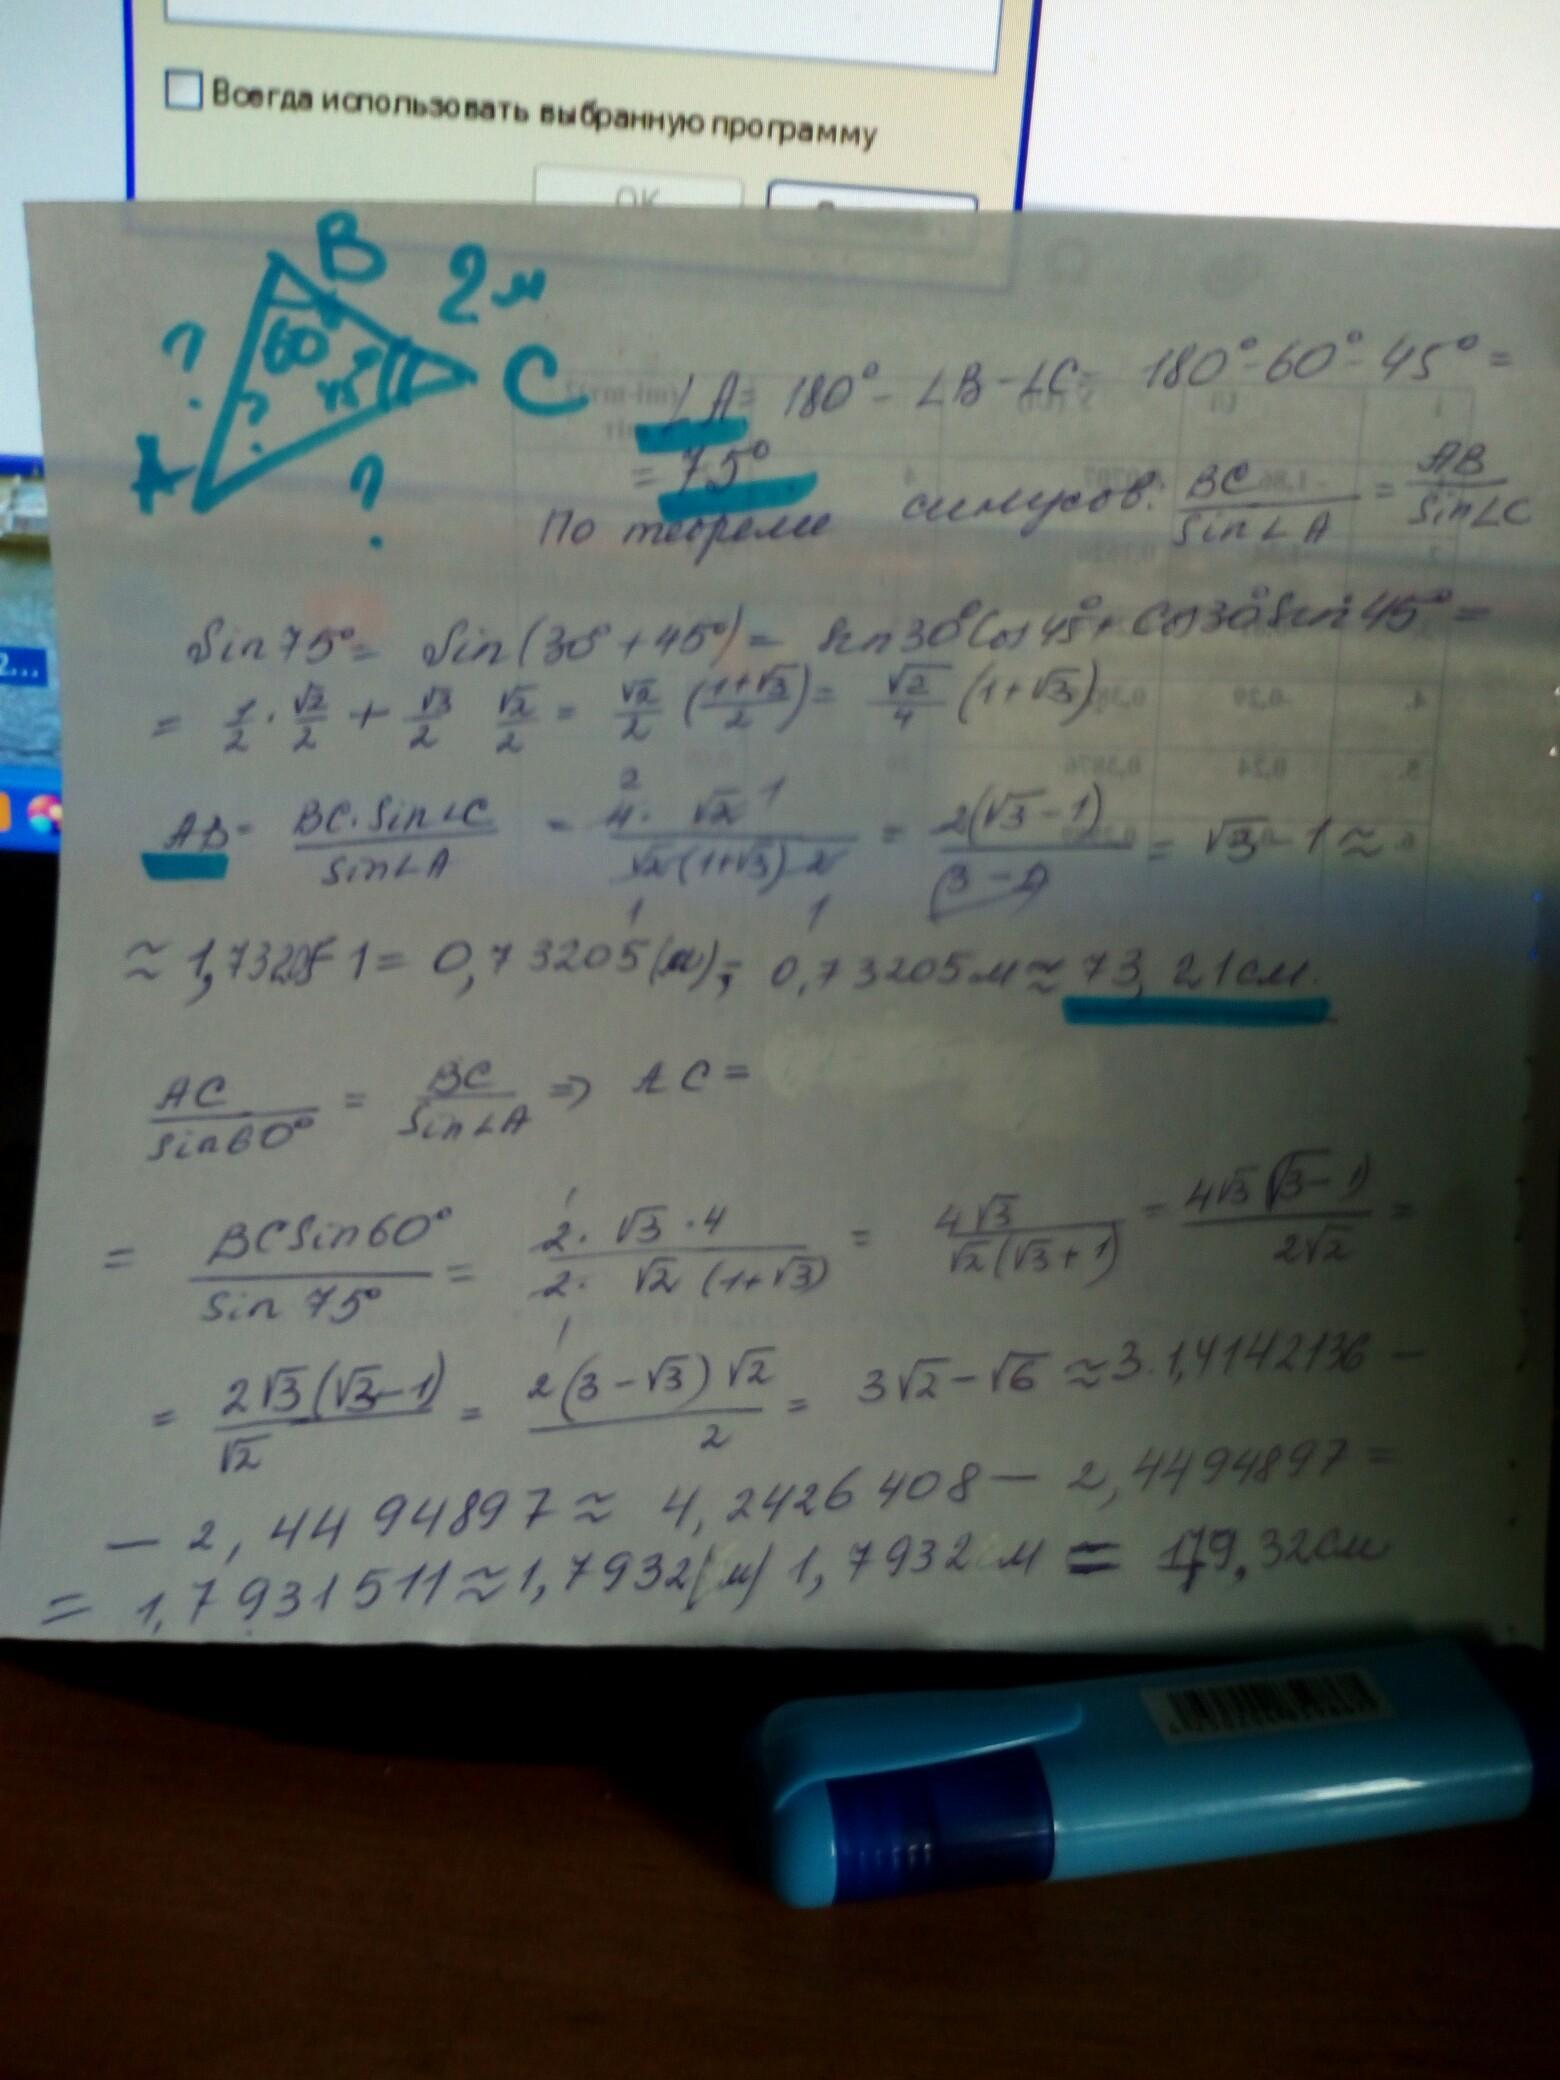 Всегда использовать выбранную программу
OK
2...
B 2м
? 60° 45° C
A ? ?
∠A = 180° - ∠B - ∠C = 180° - 60° - 45° =
= 75°
По теореме синусов: BC/sin∠A = AB/sin∠C
Sin75° = Sin(30° + 45°) = sin30°Cos45° + Cos30°Sin45° =
= 1/2 · √2/2 + √3/2 √2/2 = √2/2 (1+√3/2) = √2/4 (1+√3)
AB = BC·Sin∠C/Sin∠A = 4·√2/√2(1+√3)·2 = 2(√3-1)/(3-1) = √3-1 ≈
≈ 1,73205-1 = 0,73205(м); 0,73205м ≈ 73,21см.
AC/sin60° = BC/Sin∠A => AC =
= BCSin60°/Sin 75° = 2·√3·4/2·√2(1+√3) = 4√3/√2(√3+1) = 4√3(√3-1)/2√2 =
= 2√3(√3-1)/√2 = 2(3-√3)√2/2 = 3√2-√6 ≈ 3·1,4142136 -
- 2,4494897 ≈ 4,2426408 - 2,4494897 =
= 1,7931511 ≈ 1,7932(м) 1,7932м = 179,32см